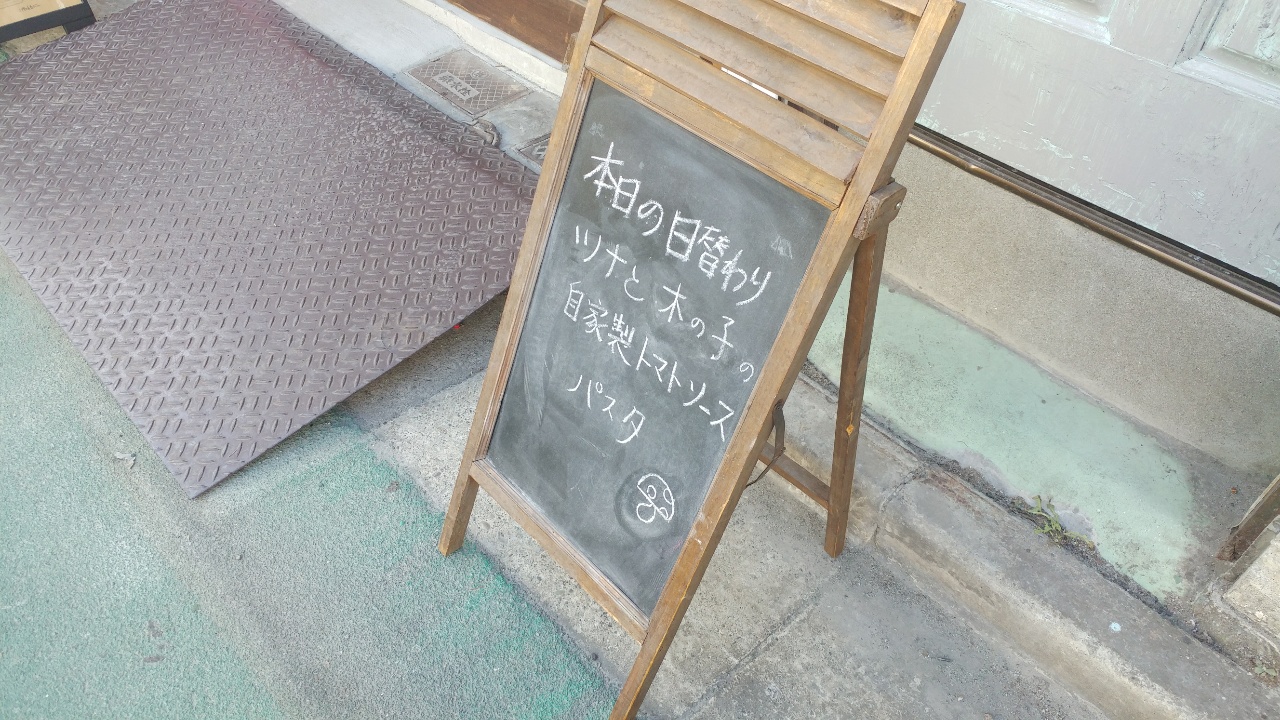 本日の日替わり
ツナと木の子の
自家製トマトソース
パスタ